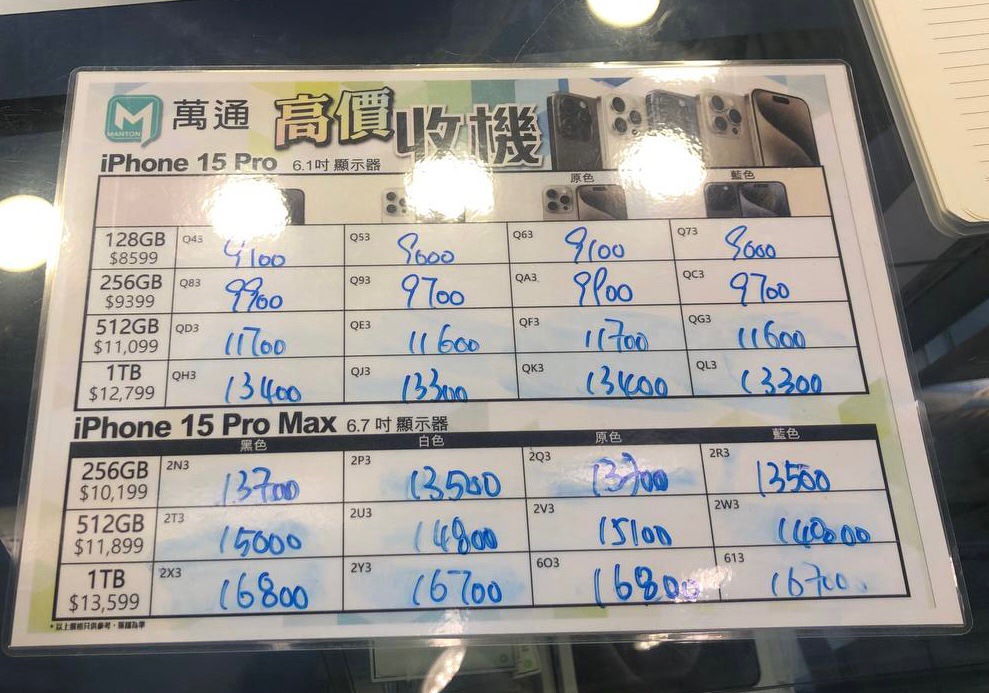 MANTON
萬通 高價收機
iPhone 15 Pro 6.1吋 顯示器
原色 藍色
128GB $8599 Q43 9100 Q53 9000 Q63 9100 Q73 9000
256GB $9399 Q83 9900 Q93 9700 QA3 9900 QC3 9700
512GB $11,099 QD3 11700 QE3 11600 QF3 11700 QG3 11600
1TB $12,799 QH3 13400 QJ3 13300 QK3 13400 QL3 13300
iPhone 15 Pro Max 6.7吋 顯示器
黑色 白色 原色 藍色
256GB $10,199 2N3 13700 2P3 13500 2Q3 2R3 13500
512GB $11,899 2T3 15000 2U3 14800 2V3 15100 2W3
1TB $13,599 2X3 16800 2Y3 16700 603 16800 613 16700
*以上價格只供參考